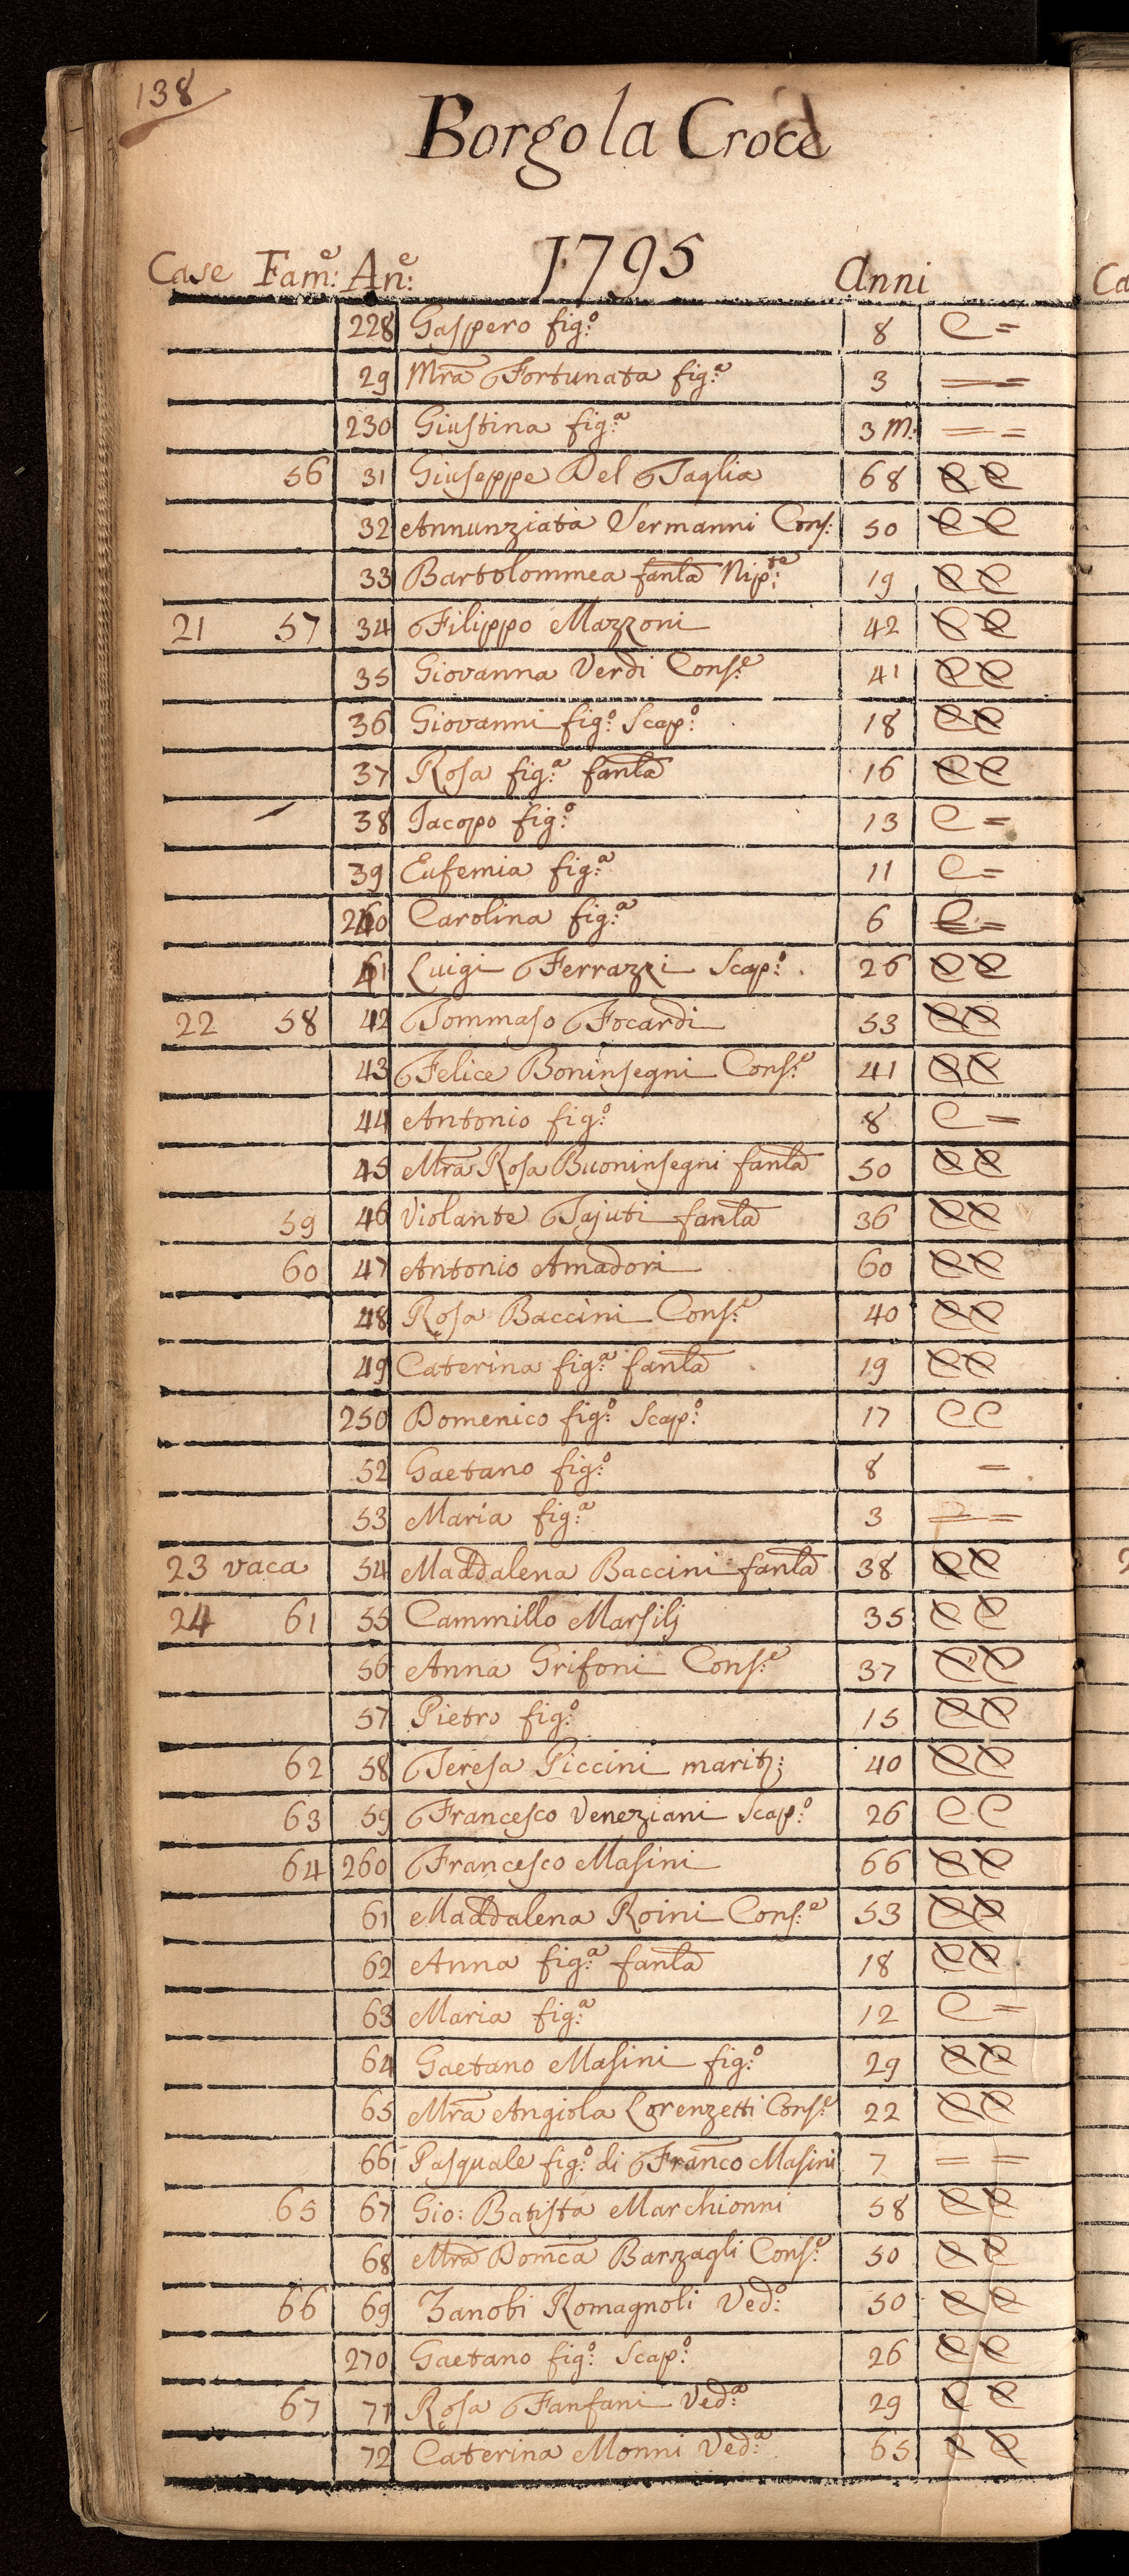 138
Borgo la Croce
1795
Case Fam:e An:e Anni
228 Gaspero fig:o 8 C =
29 Mra Fortunata fig:a 3 = =
230 Giustina fig:a 3 M: = =
56 31 Giuseppe Del Taglia 68 C C
32 Annunziata Sermanni Cons: 50 C C
33 Bartolommea fanla Nip:te 19 C C
21 57 34 Filippo Mazzoni 42 C C
35 Giovanna Verdi Cons:e 41 C C
36 Giovanni fig:o Scap:o 18 C C
37 Rosa fig:a fanla 16 C C
38 Jacopo fig:o 13 C =
39 Eufemia fig:a 11 C =
240 Carolina fig:a 6 C =
41 Luigi Ferrazzi Scap:o 26 C C
22 58 42 Tommaso Focardi 53 C C
43 Felice Boninsegni Cons:e 41 C C
44 Antonio fig:o 8 C =
45 Mra Rosa Buoninsegni fanla 50 C C
59 46 Violante Tajuti fanla 36 C C
60 47 Antonio Amadori 60 C C
48 Rosa Baccini Cons:e 40 C C
49 Caterina fig:a fanla 19 C C
250 Domenico fig:o Scap:o 17 C C
52 Gaetano fig:o 8 =
53 Maria fig:a 3 = =
23 vaca 54 Maddalena Baccini fanla 38 C C
24 61 55 Cammillo Marsilj 35 C C
56 Anna Grifoni Cons:e 37 C C
57 Pietro fig:o 15 C C
62 58 Teresa Piccini marit: 40 C C
63 59 Francesco Veneziani Scap:o 26 C C
64 260 Francesco Masini 66 C C
61 Maddalena Roini Cons:e 53 C C
62 Anna fig:a fanla 18 C C
63 Maria fig:a 12 C =
64 Gaetano Masini fig:o 29 C C
65 Mra Angiola Lorenzetti Cons:e 22 C C
66 Pasquale fig:o di Franco Masini 7 = =
65 67 Gio: Batista Marchionni 58 C C
68 Mra Domca Barzagli Cons:e 50 C C
66 69 Zanobi Romagnoli Ved:o 50 C C
270 Gaetano fig:o Scap:o 26 C C
67 71 Rosa Fanfani Ved:a 29 C C
72 Caterina Monni Ved:a 65 C C